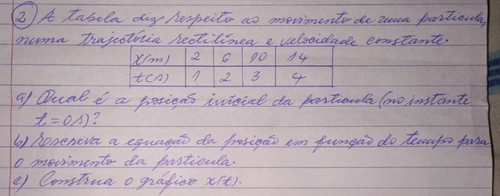 2) A tabela diz respeito ao movimento de uma particula,
numa trajectória rectilínea e velocidade constante.
X(m) 2 6 10 14
t(s) 1 2 3 4
a) Qual é a posição inicial da particula (no instante
t=0s)?
b) Escreva a equação da posição em função do tempo para
o movimento da particula.
c) Construa o gráfico x(t).